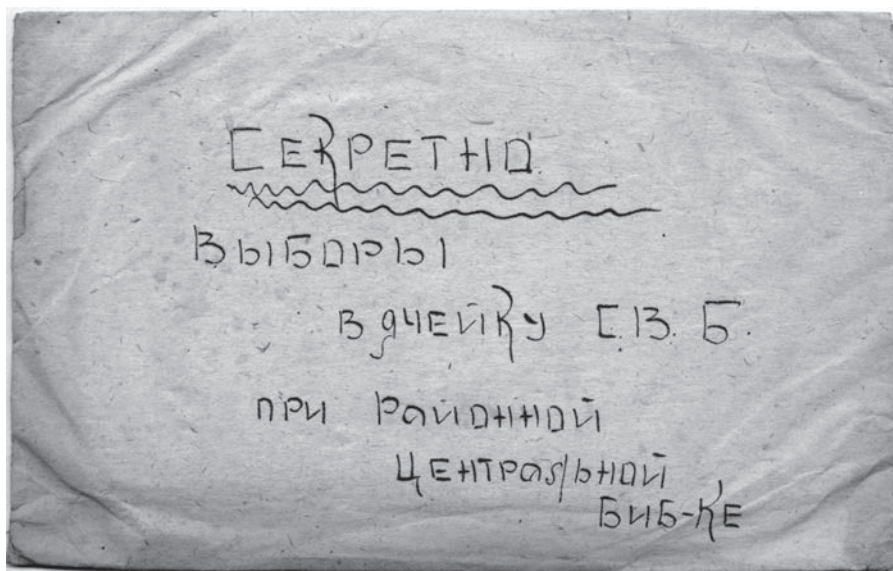 СЕКРЕТНО
ВЫБОРЫ
В ЯЧЕЙКУ С.В.Б.
ПРИ РАЙОННОЙ
ЦЕНТРАЛЬНОЙ
БИБ-КЕ